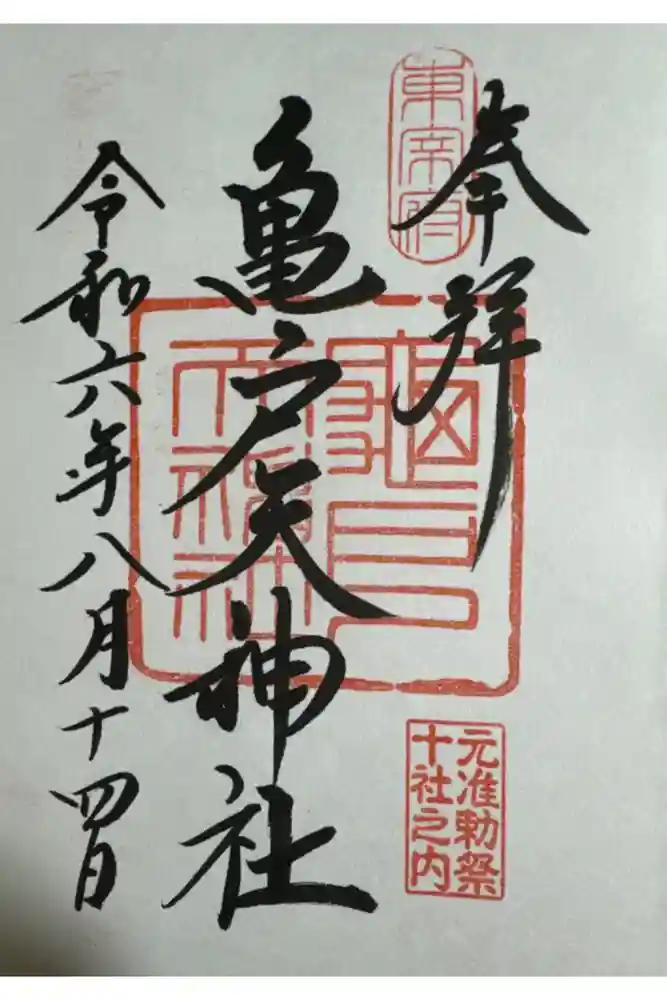 奉拝
東宰府
元准勅祭
十社之内
亀戸天神社
令和六年八月十四日